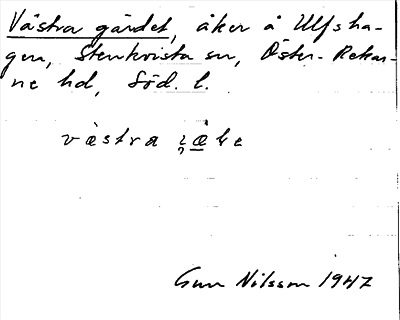 Västra gärdet, åker å Ulfsha-
gen, Stenkvista sn, Öster-Rekar-
ne hd, Söd. l.
västra
Gun Nilsson 1947